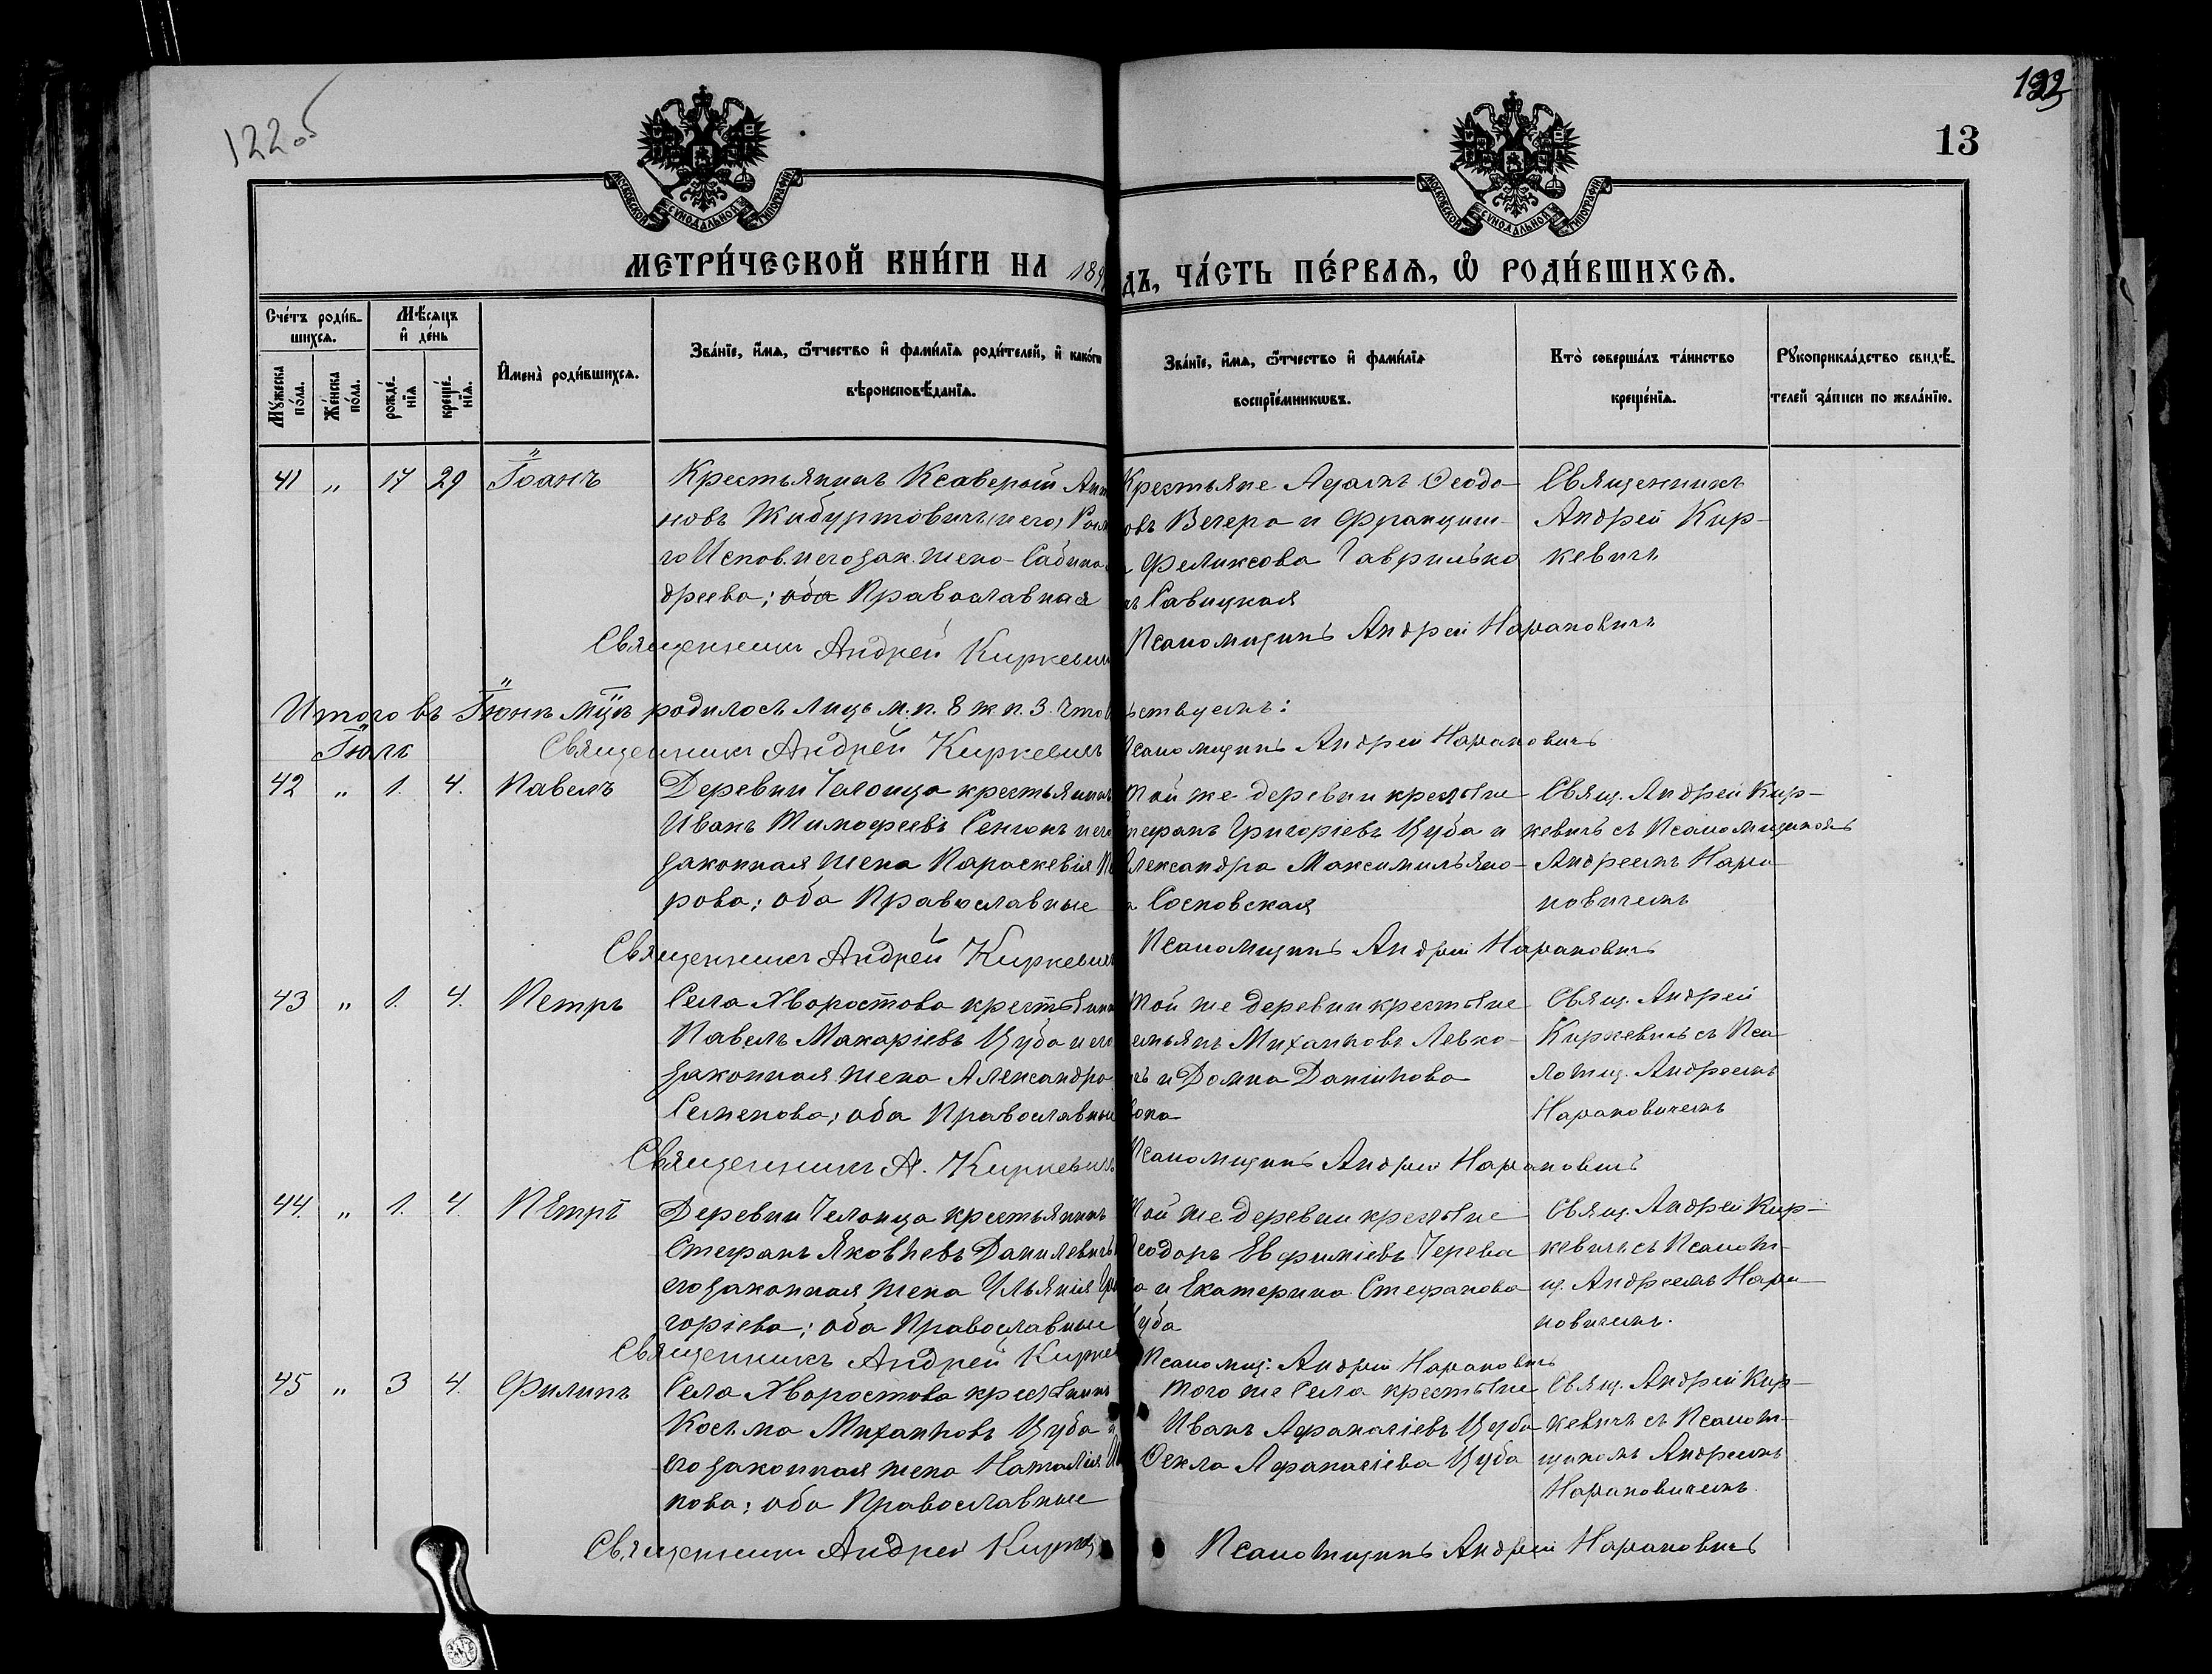 122об
122
13
МОСКОВСКОЙ СѴНОДАЛЬНОЙ ТИПОГРАФІИ
МОСКОВСКОЙ СѴНОДАЛЬНОЙ ТИПОГРАФІИ
МЕТРИ́ЧЕСКОЙ КНИ́ГИ НА 189
ДЪ, ЧА́СТЬ ПЕ́РВАѦ, Ѽ РОДИ́ВШИХСѦ.
Сче́тъ роди́в-
шихсѧ.
Мѣ́сѧцъ
и҆ де́нь
Мꙋ́жеска по́ла.
Же́нска по́ла.
рожде́-нїѧ
креще́-нїѧ.
И҆мена̀ роди́вшихсѧ.
Зва́нїе, и҆́мѧ, ѻ҆́тчество и҆ фами́лїѧ роди́телей, и҆ како́гѡ
вѣроисповѣ́данїѧ.
Зва́нїе, и҆́мѧ, ѻ҆́тчество и҆ фами́лїѧ
воспрїе́мникѡвъ.
Кто̀ соверша́лъ та́инство
креще́нїѧ.
Рꙋкоприкла́дство свидѣ́-
телей за́писи по жела́нїю.
41 " 17 29 Іоанъ
Крестьянинъ Ксаверый Ант
новъ Жибуртовичъ (и его) Рим
го Испов. и его зак. жена Сабина
дреева; оба Православная
Крестьяне Адамъ Ѳеодо-
овъ Вечеро и Францишк-
Феликсова Гаврилько
Савицкая
Священникъ
Андрей Кир-
кевичъ
Священникъ Андрей Киркевич
Псаломщикъ Андрей Нарановичъ
Итого въ Іюнѣ мцѣ родилось лицъ м.п. 8 ж.п. 3. Что
ѣствуемъ:
Іюль
Священникъ Андрей Киркевичъ
Псаломщикъ Андрей Нарановичъ
42 " 1. 4. Павелъ
Деревни Челонца крестьянинъ
Иванъ Тимофеевъ Сенюкъ и его
законная жена Параскевія
рова; оба Православные
Той же деревни крестьяне
Стефанъ Григоріевъ Цуба и
Александра Максимильяно-
а Сосновская
Свящ. Андрей Кир-
кевичъ съ Псаломщикомъ
Андреемъ Нара-
новичемъ
Священникъ Андрей Киркевич
Псаломщикъ Андрей Нарановичъ
43 " 1. 4. Петръ
Села Хворостова крестьянин
Павелъ Макаріевъ Цуба и его
законная жена Александра
Семенова; оба Православные
Той же деревни крестьяне
емьянъ Михаиловъ Левко-
чъ и Домна Даніилова
вона
Свящ. Андрей
Киркевичъ съ Пса
ломщ. Андреемъ
Нарановичемъ
Священникъ А. Киркевичъ
Псаломщикъ Андрей Нарановичъ
44. " 1. 4. Петръ
Деревни Челонца крестьянинъ
Стефанъ Яковлевъ Данилевичъ
его законная жена Ульянія Гри
горіева; оба Православные
Той же деревни крестьяне
Ѳеодоръ Евфиміевъ Черева
ка и Екатерина Стефанова
Цуба
Свящ. Андрей Кир-
кевичъ съ Псалом-
щ. Андреемъ Нара-
новичемъ.
Священникъ Андрей Кирке
Псаломщ: Андрей Нарановичъ
45 " 3 4. Филипъ
Села Хворостова крестьянинъ
Косьма Михаиловъ Цуба и
его законная жена Наталія
нова; оба Православные
Того же Села крестьяне
Иванъ Афанасіевъ Цуба
Ѳекла Афанасіева Цуба
Свящ. Андрей Кир-
кевичъ съ Псалом-
щикомъ Андреемъ
Нарановичемъ.
Священникъ Андрей Кирке
Псаломщикъ Андрей Нарановичъ